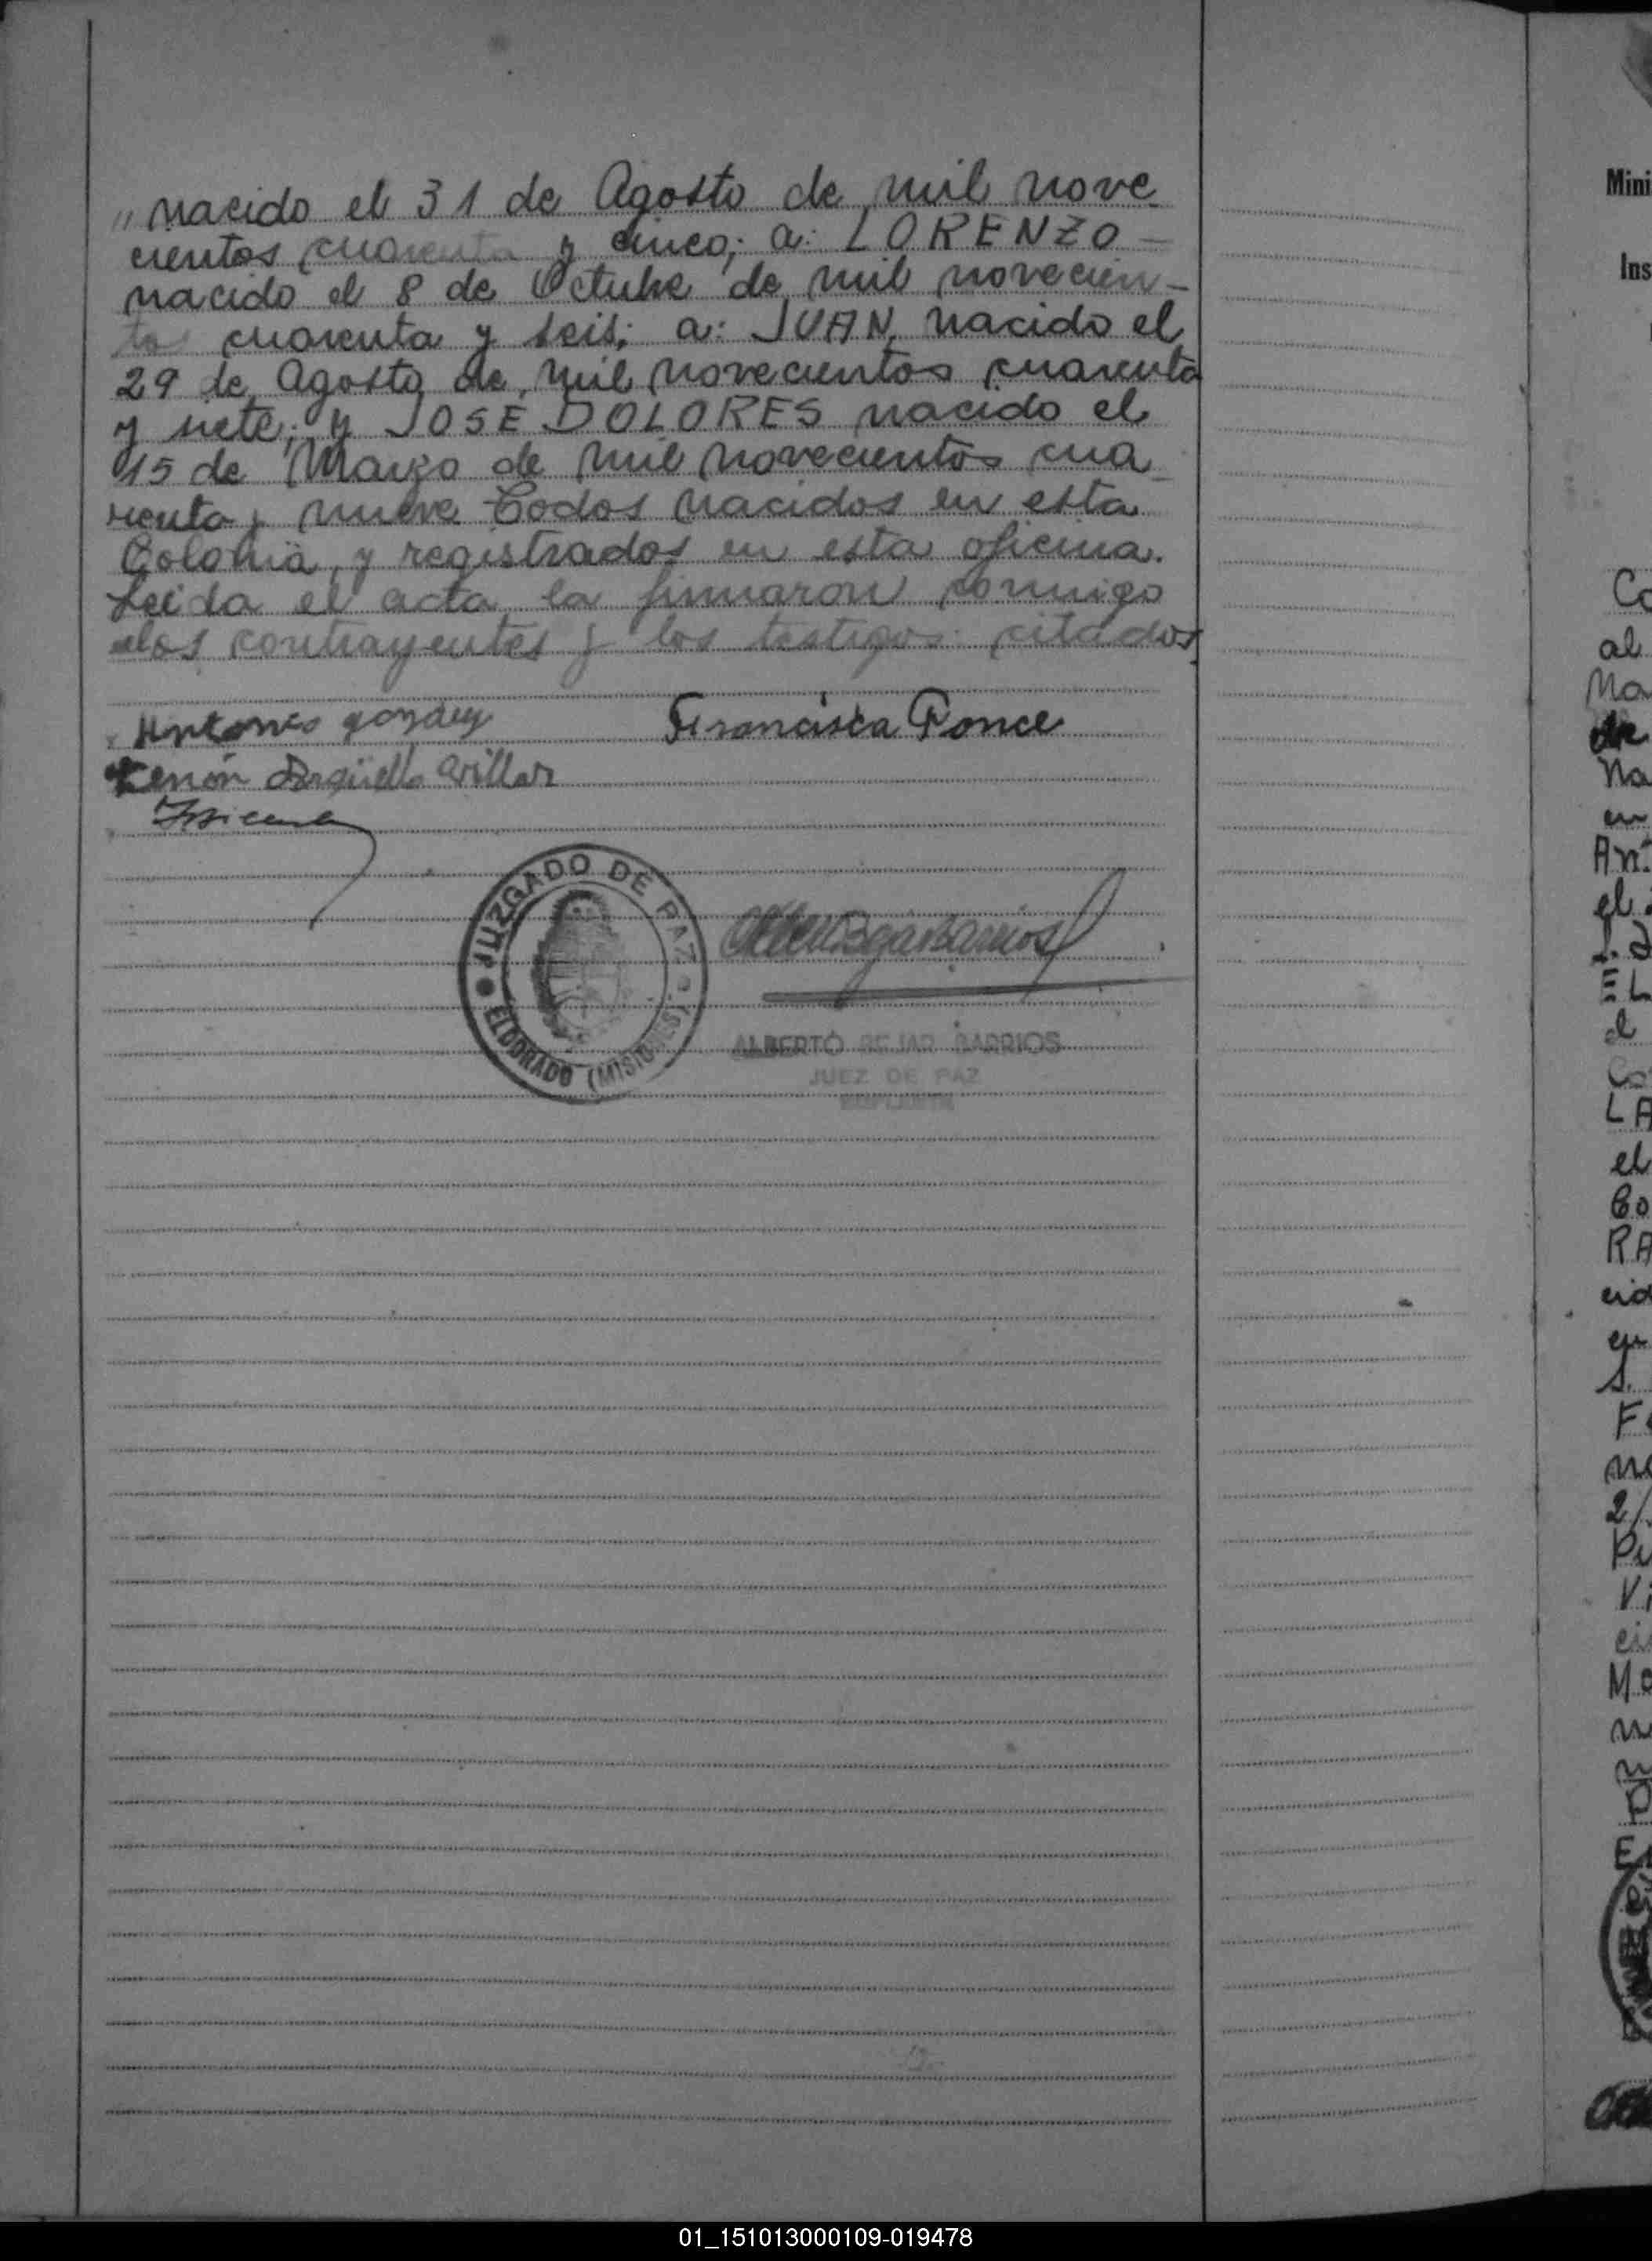 " nacido el 31 de Agosto de mil nove
cientos cuarenta y cinco; a: LORENZO –
nacido el 8 de Octubre de mil novecien-
tos cuarenta y seis; a: JUAN, nacido el
29 de Agosto de mil novecientos cuarenta
y siete; y JOSE DOLORES nacido el
15 de Marzo de mil novecientos cua
renta y nueve Todos nacidos en esta
Colonia, y registrados en esta oficina.
Leida el acta la firmaron conmigo
los contrayentes y los testigos citados
Francisca Ponce
Zenón Argüello Villar
JUZGADO DE PAZ
ELDORADO (MISIONES)
ALBERTO BEJAR BARRIOS
JUEZ DE PAZ
SUPLENTE
Mini
Ins
Co
al
Na
de
Na
en
An
el
EL
el
Co
LA
el
Co
RA
cid
en
F
2/
Vi
Mo
01_151013000109-019478